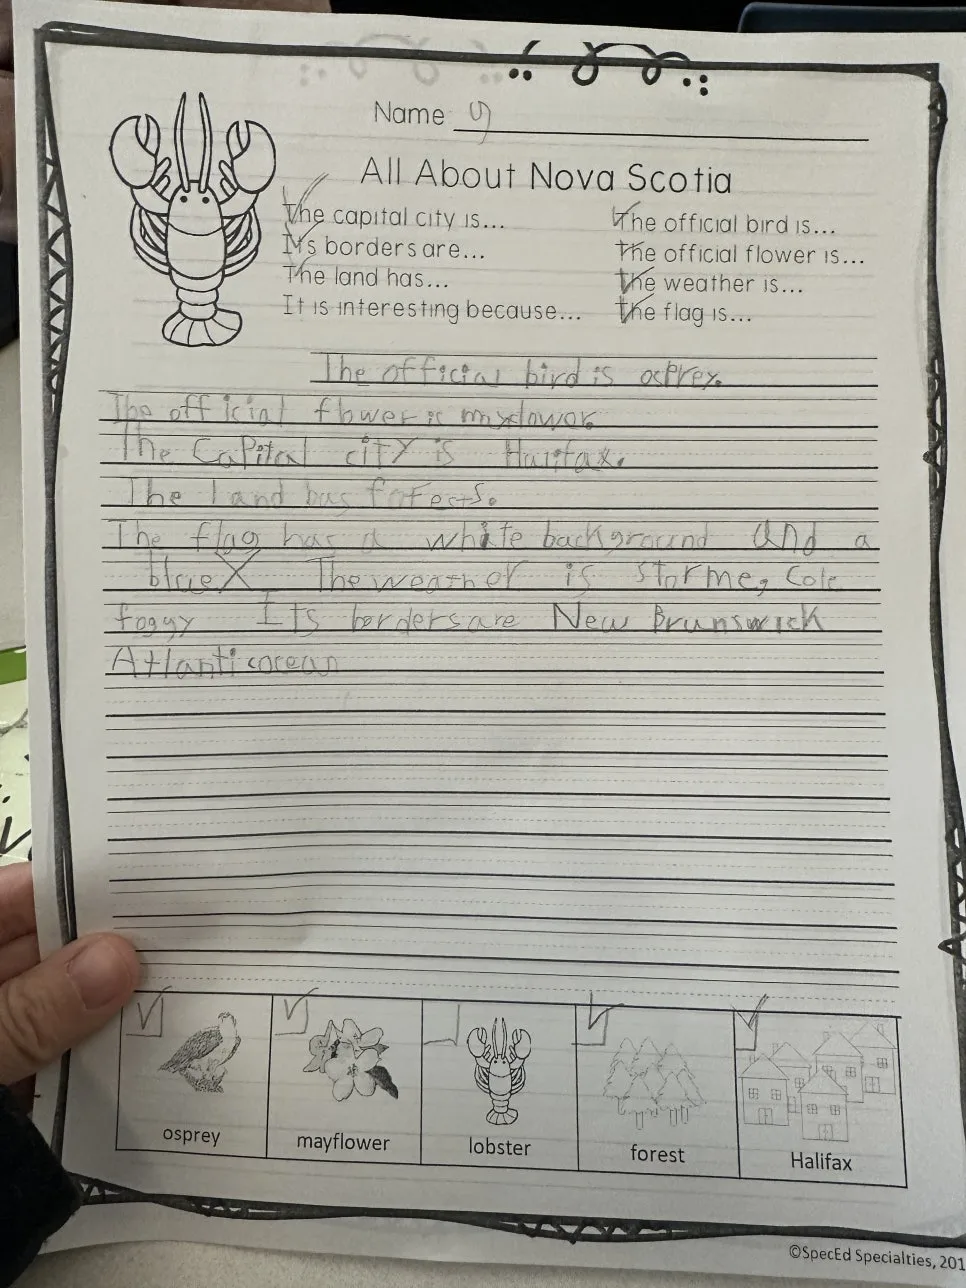 Name
All About Nova Scotia
The capital city is...
Its borders are...
The land has...
It is interesting because...
The official bird is...
The official flower is...
The weather is...
The flag is...
The official bird is osprey.
The official flower is
The Capital city is Halifax.
The land has forests.
The flag has a white background and a
blue X The weather is storme, Cole
foggy Its borders are New Brunswick
Atlantic ocean
osprey
mayflower
lobster
forest
Halifax
©SpecEd Specialties, 201